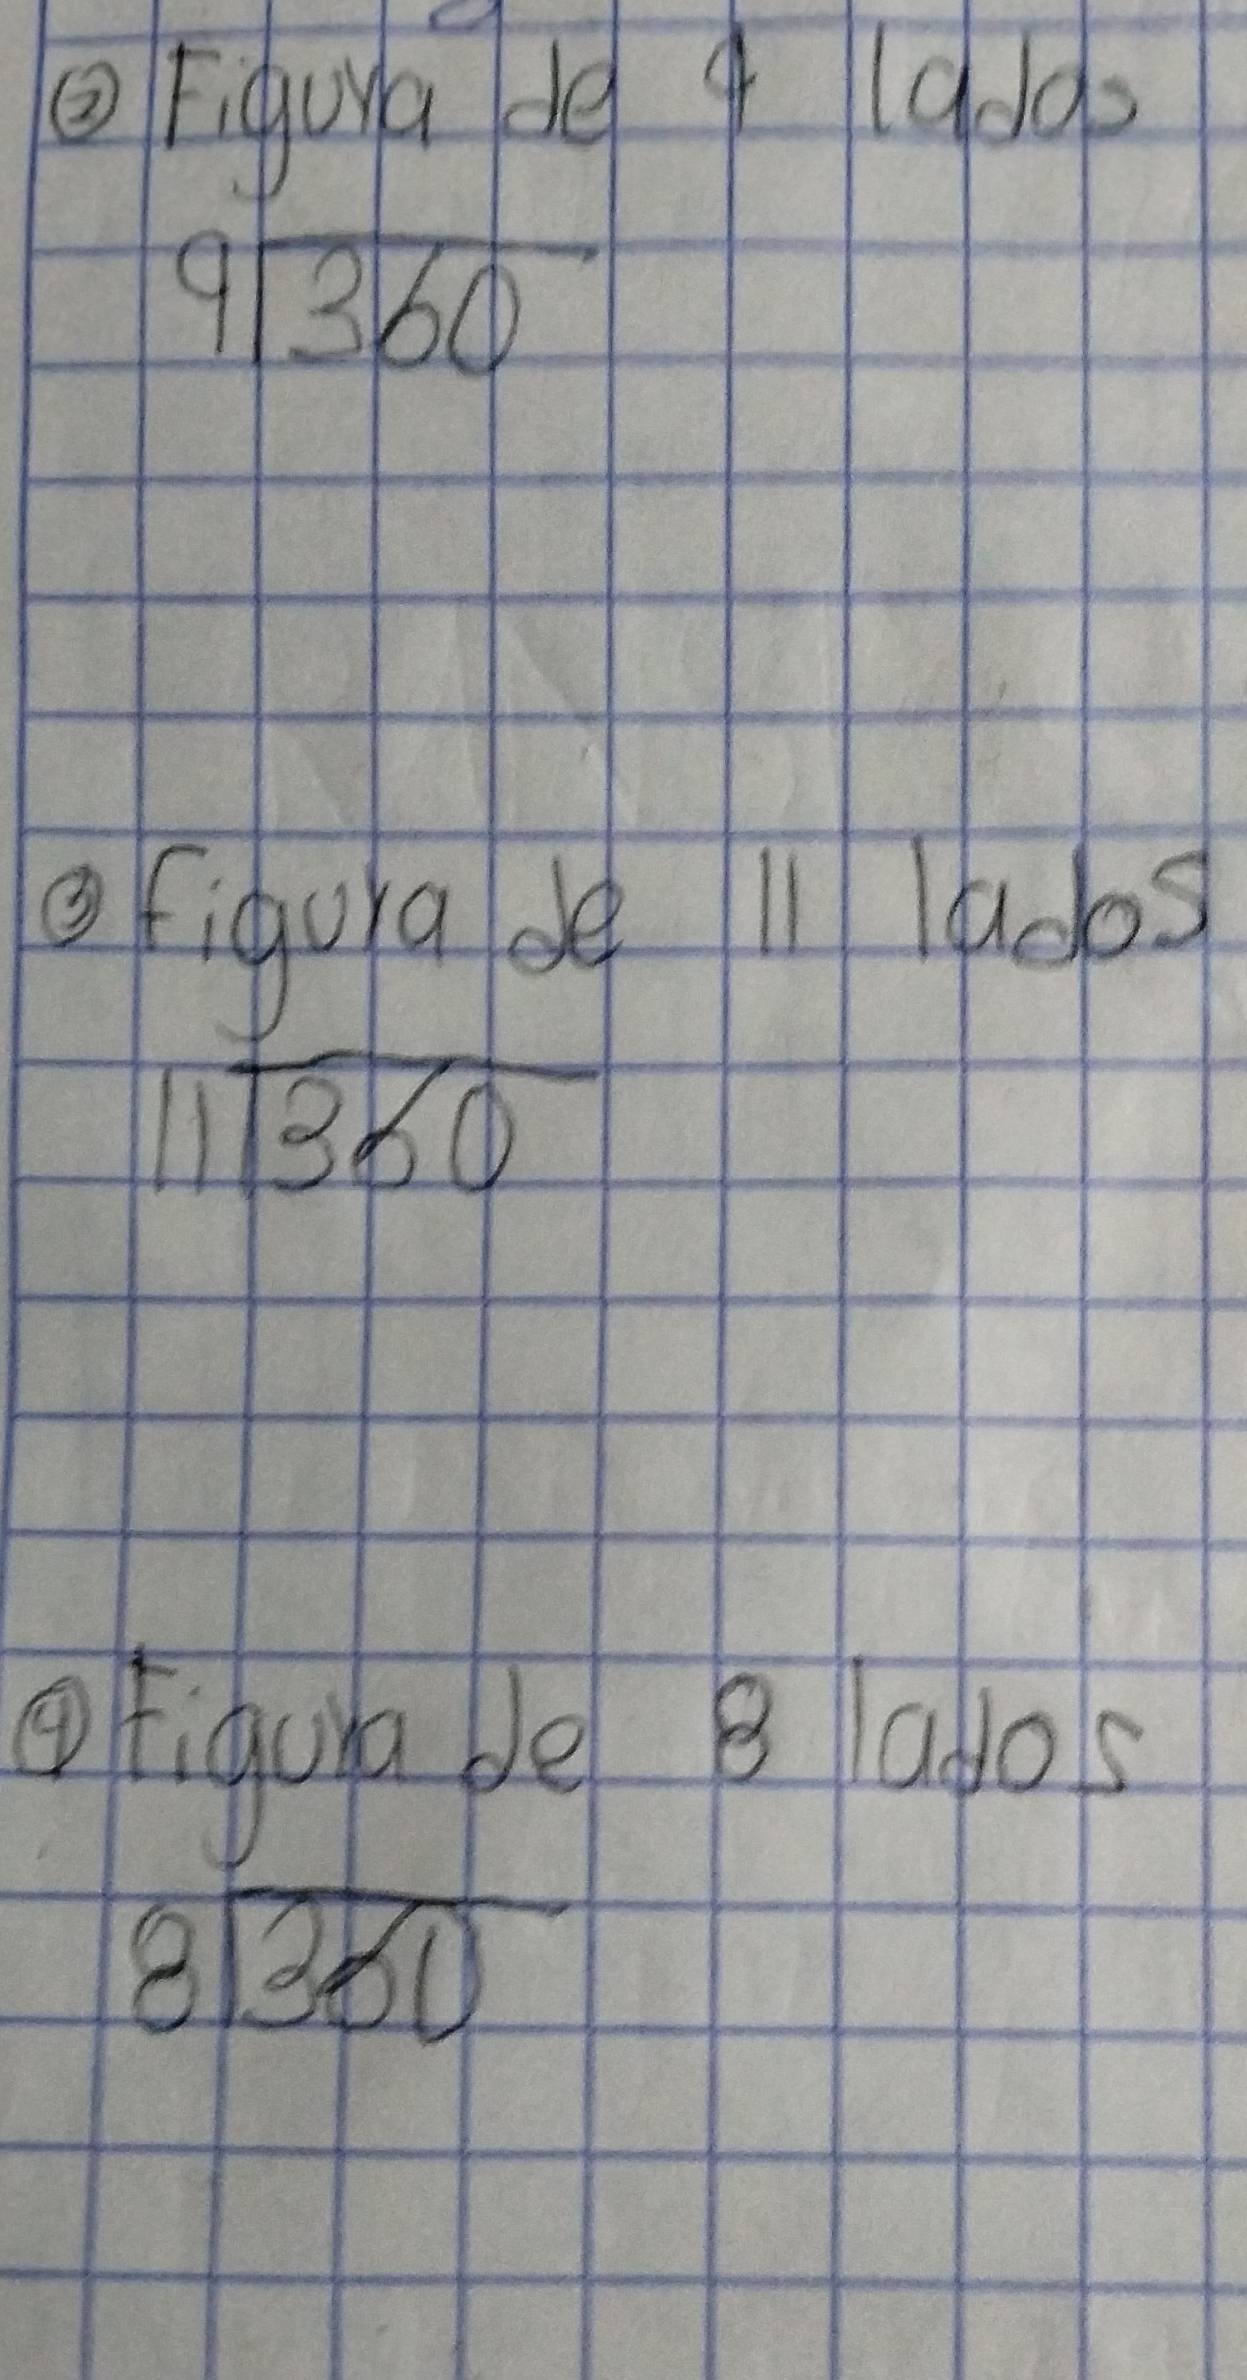 ② Figura de 9 lados
9 360
③ Figura de 11 lados
11 360
④ Figura de 8 lados
8 360